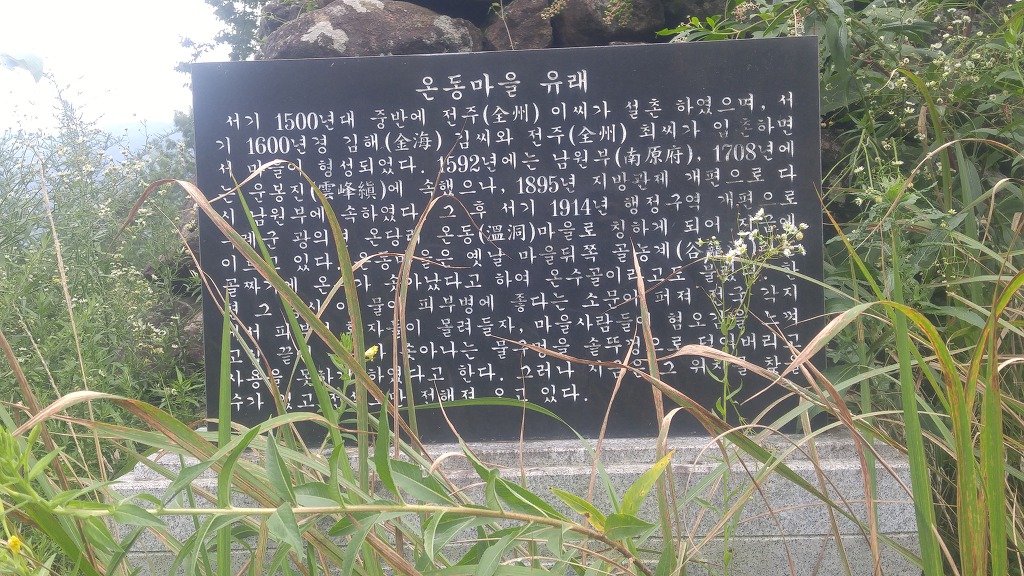 온동마을 유래
서기 1500년대 중반에 전주(全州) 이씨가 설촌 하였으며, 서
기 1600년경 김해(金海) 김씨와 전주(全州) 최씨가 입촌하면
서 마을이 형성되었다. 1592년에는 남원부(南原府), 1708년에
는 운봉진(雲峰縝)에 속했으나, 1895년 지방관제 개편으로 다
시 남원부에 속하였다. 그 후 서기 1914년 행정구역 개편으로
군 광의면 온당리 온동(溫洞)마을로 칭하게 되어
이르고 있다. 온동마을은 옛날 마을뒤쪽 골농계
골짜기에 온수가 솟아났다고 하여 온수골이라고
그 물이 피부병에 좋다는 소문이 퍼져 각지
에서 피부병 환자들이 몰려들자, 마을사람들은 혐오감을 느껴
고 솟아나는 물구멍을 솥뚜껑으로 덮어버리
사용을 못하게 하였다고 한다. 그러나 지금은 그 위치를 찾을
수가 없고 전해져 오고 있다.